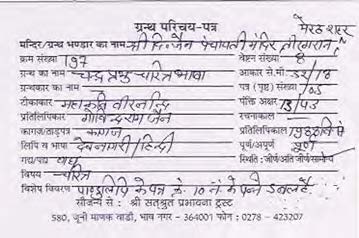 ग्रन्थ परिचय-पत्र मेरठ शहर
मन्दिर/ग्रन्थ भण्डार का नाम श्री दि. जैन पंचायती मंदिर तीरगरान
क्रम संख्या 197 वेष्टन संख्या 8
ग्रन्थ का नाम चन्द्रप्रभु चरित्र भाषा आकार से.मी.
ग्रन्थकार का नाम पत्र (पृष्ठ) संख्या
टीकाकार महाकवि वीरनन्दि पंक्ति अक्षर
प्रतिलिपिकार गोविन्दराम जैन रचनाकाल
कागज/ताड़पत्र कागज प्रतिलिपिकाल
लिपि व भाषा देवनागरी/हिन्दी पूर्ण/अपूर्ण पूर्ण
गद्य/पद्य पद्य स्थिति: जीर्ण/अति जीर्ण/सामान्य
विषय चरित्र
विशेष विवरण पाण्डुलिपि के पत्र क्र. 10 नं. के पन्ने डबल है
सौजन्य से : श्री सतश्रुत प्रभावना ट्रस्ट
580, जूनी माणक वाडी, भाव नगर - 364001 फोन : 0278 - 423207